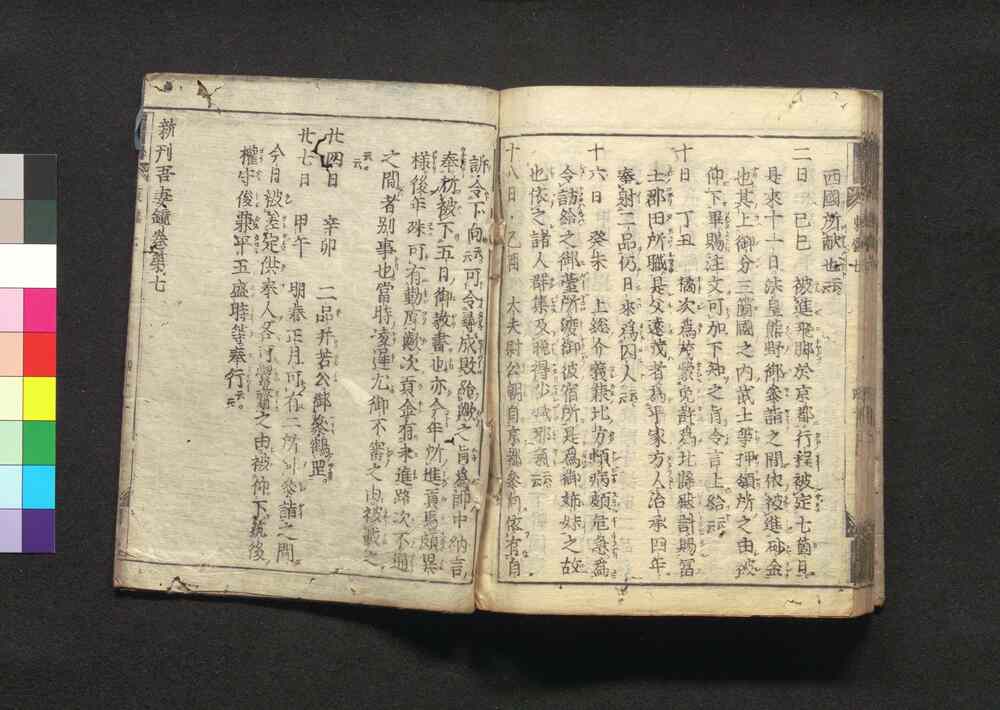 西國所献也云云
二日 己巳 被進飛脚於京都行程被定七箇日
是來十一日法皇熊野御參詣之間依被進砂金
也其上御分三箇國之内武士等押領所之由被
仰下畢賜注文可加下知之旨令言上給云云
十日 丁丑 橘次爲茂蒙免許爲北條殿計賜冨
士郡田所職是父遠茂者爲平家方人治承四年
奉射二品仍日來爲囚人云云
十六日 癸未 上総介廣兼北方頓病頗危急爲
令訪給之御臺所渡御彼宿所是爲御姉妹之故
也依之諸人群集及晩得少減邪氣云云
十八日 乙酉 大夫尉公朝自京都參向依有自
訴令下向云云可令尋成敗給歟之旨爲帥中納言
奉被下五日御教書也亦今年所進貢馬頗異
様後年殊可有勤厚歟次貢金有未進路次不通
之間者別事也當時遅尤御不審之由被載之
云云
廿四日 辛卯 二品并若公御參鶴岡
廿七日 甲午 明春正月可有二所御參詣之間
今日被差定供奉人各可警之由被仰下筑後
權守俊兼平五盛時等奉行云云
新刊吾妻鏡卷第七